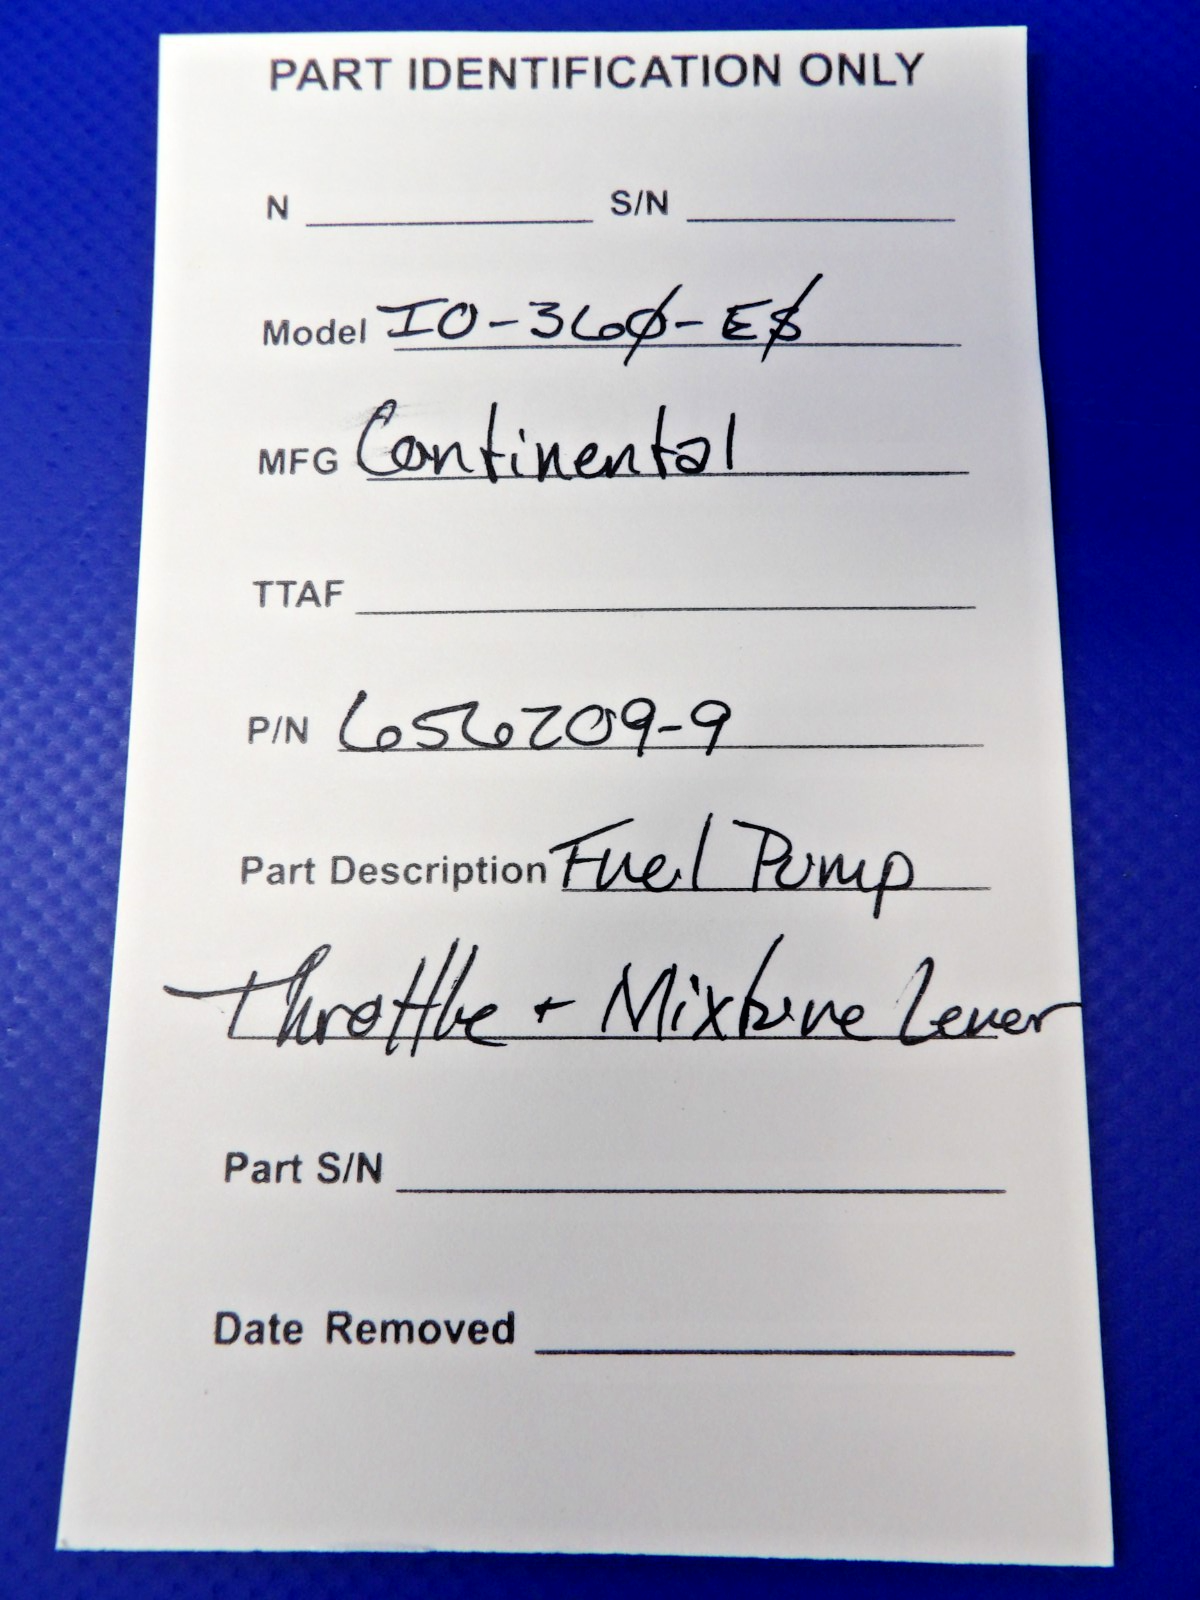 PART IDENTIFICATION ONLY
N S/N
Model IO-360-ES
MFG Continental
TTAF
P/N 656209-9
Part Description Fuel Pump
Throttle + Mixture Lever
Part S/N
Date Removed